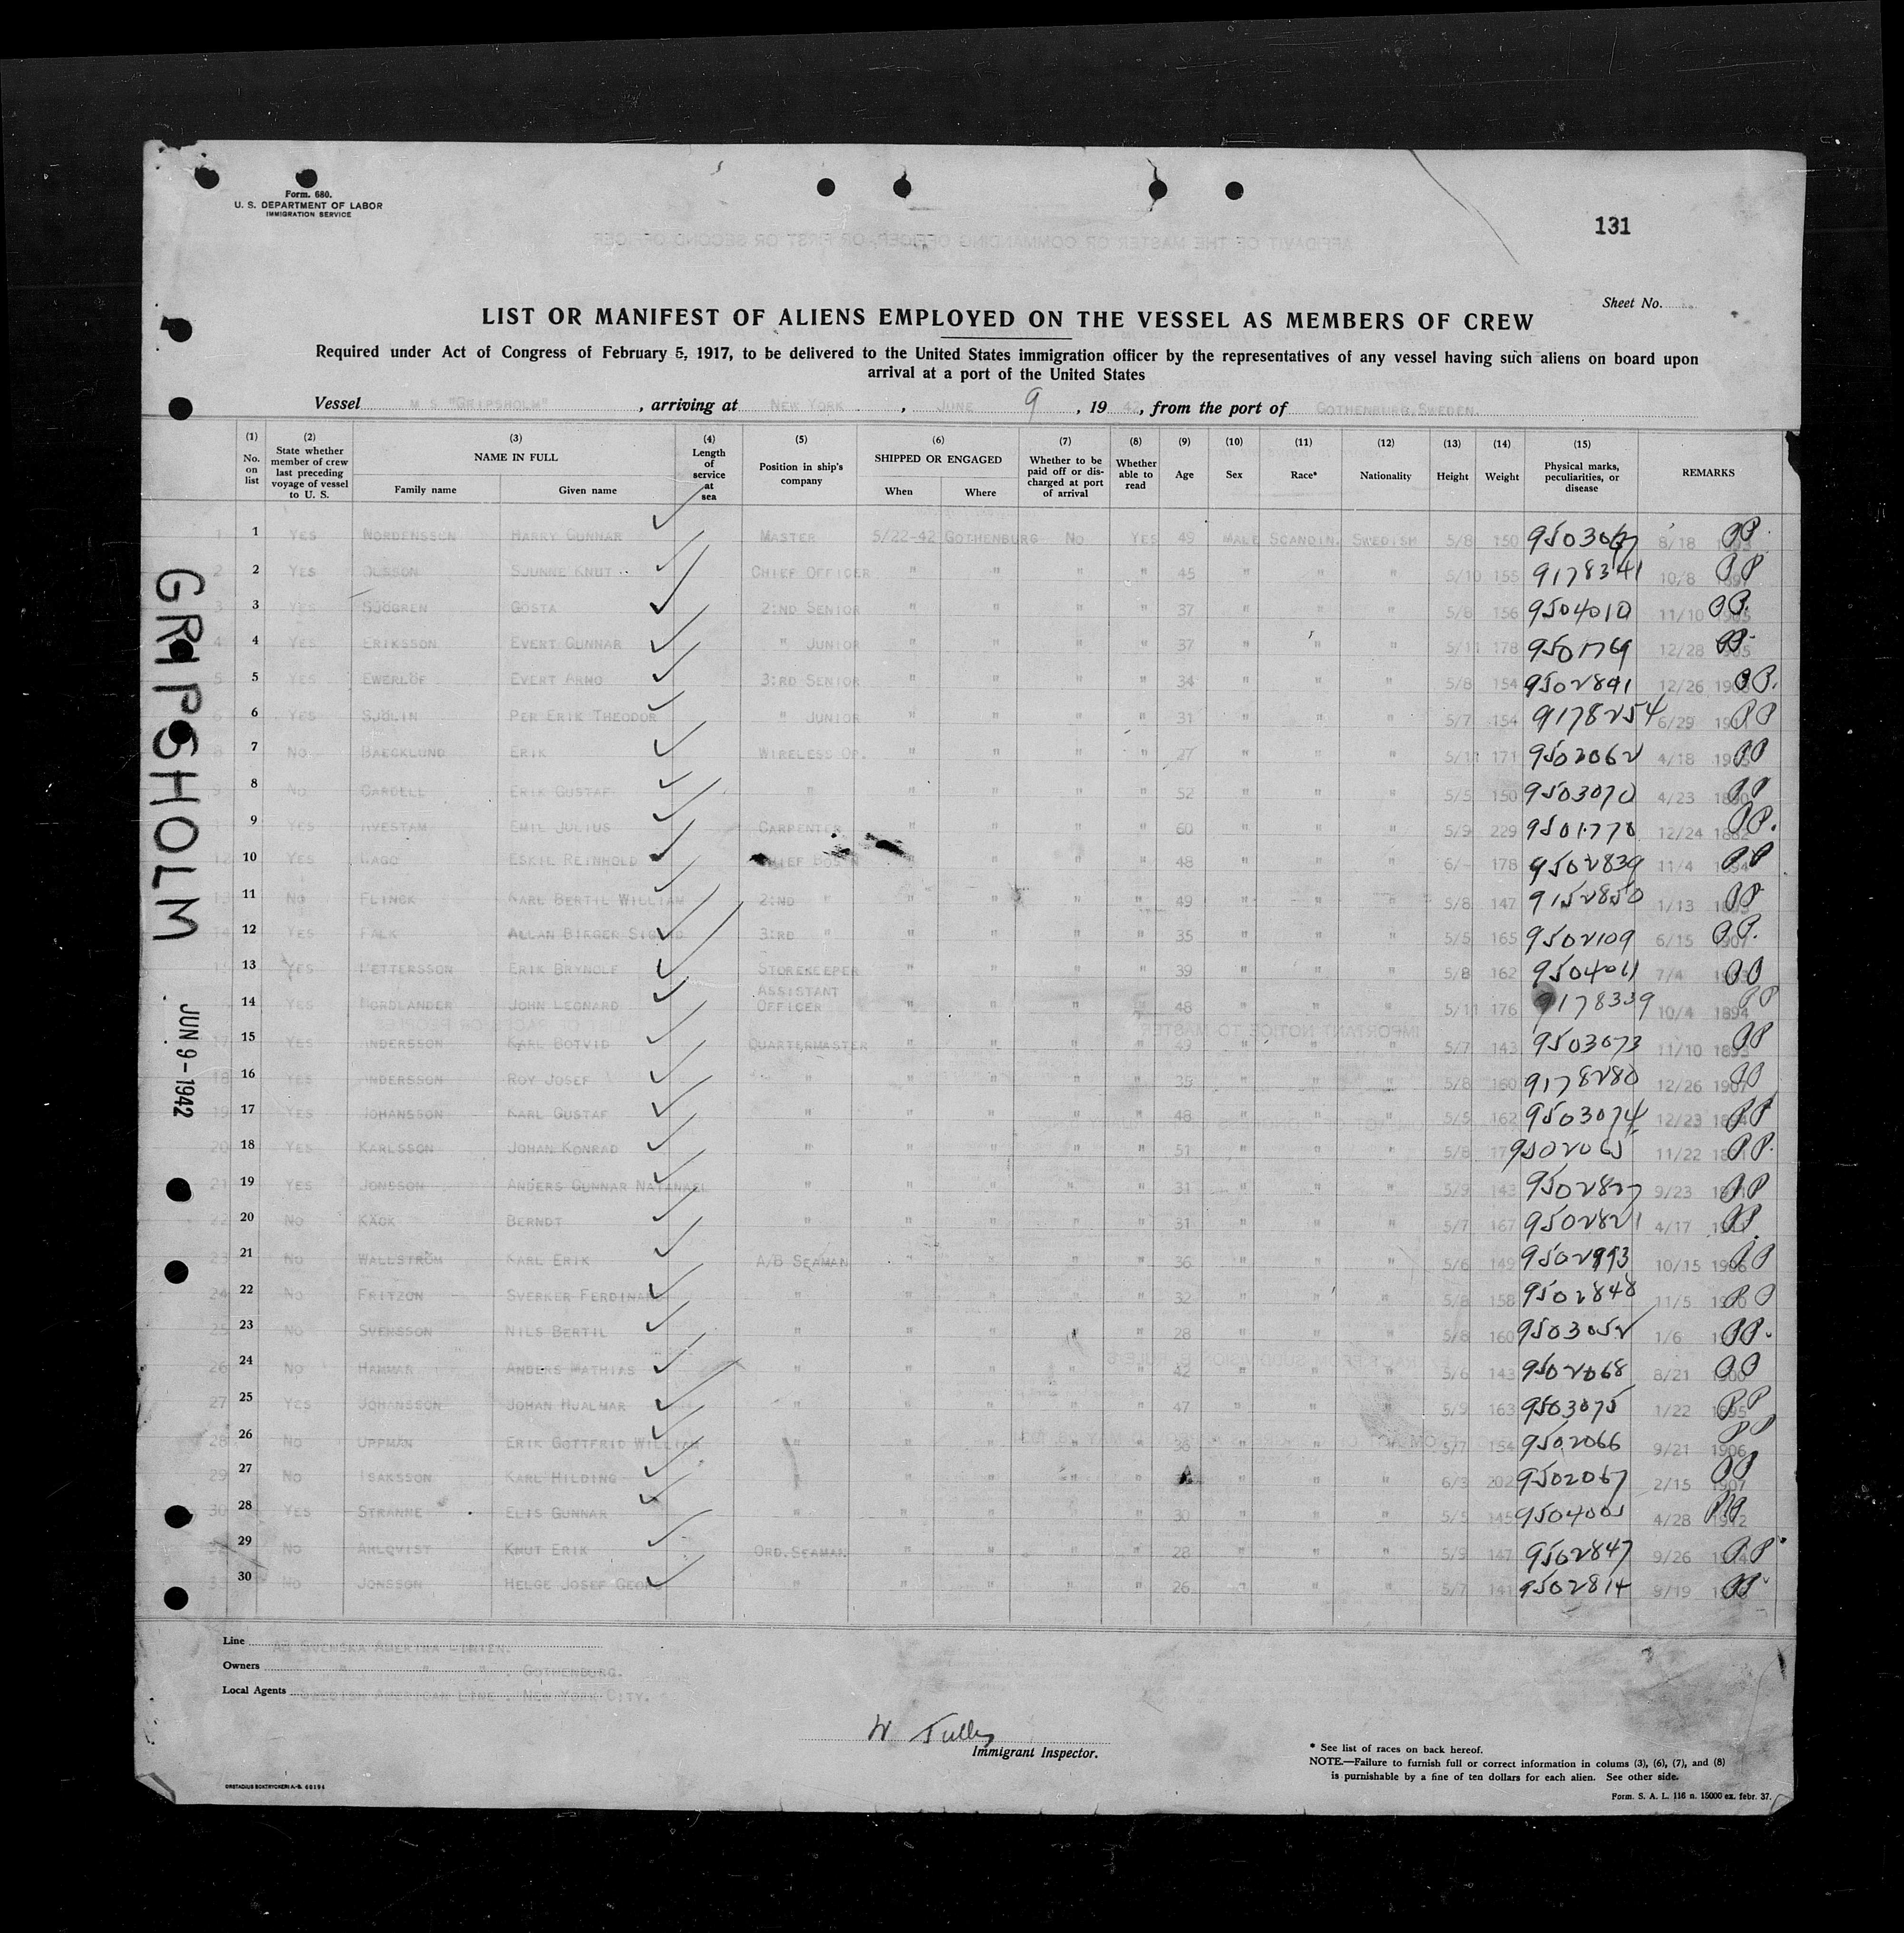 Form. 680.
U. S. DEPARTMENT OF LABOR
IMMIGRATION SERVICE
131
Sheet No.
LIST OR MANIFEST OF ALIENS EMPLOYED ON THE VESSEL AS MEMBERS OF CREW
Required under Act of Congress of February 5, 1917, to be delivered to the United States immigration officer by the representatives of any vessel having such aliens on board upon
arrival at a port of the United States
Vessel M S "GRIPSHOLM", arriving at NEW YORK, JUNE 9, 19 42, from the port of GOTHENBURG, SWEDEN.
(1) No. on list (2) State whether member of crew last preceding voyage of vessel to U. S. (3) NAME IN FULL Family name Given name (4) Length of service at sea (5) Position in ship's company (6) SHIPPED OR ENGAGED When Where (7) Whether to be paid off or discharged at port of arrival (8) Whether able to read (9) Age (10) Sex (11) Race* (12) Nationality (13) Height (14) Weight (15) Physical marks, peculiarities, or disease REMARKS
1 1 YES NORDENSSON HARRY GUNNAR MASTER 5/22-42 GOTHENBURG NO YES 49 MALE SCANDIN. SWEDISH 5/8 150 8/18 PP.
2 2 YES OLSSON SJUNNE KNUT CHIEF OFFICER " " " " 45 " " " 5/10 155 9178341 10/8 PP
3 3 YES SJÖGREN GÖSTA 2:ND SENIOR " " " " 37 " " " 5/8 156 9504010 11/10 1905 PP.
4 4 YES ERIKSSON EVERT GUNNAR " JUNIOR " " " " 37 " " " 5/11 178 9501769 12/28 PP
5 5 YES EWERLÖF EVERT ARNO 3:RD SENIOR " " " " 34 " " " 5/8 154 9502891 12/26 PP.
6 6 YES SJÖLIN PER ERIK THEODOR " JUNIOR " " " " 31 " " " 5/7 154 9178254 6/29 PP
8 7 NO BAECKLUND ERIK WIRELESS OP. " " " " 27 " " " 5/11 171 9502062 4/18 PP
9 8 NO GARDELL ERIK GUSTAF " " " " " 52 " " " 5/5 150 9503070 4/23 PP
9 YES AVESTAM EMIL JULIUS CARPENTER " " " " 60 " " " 5/9 229 9501770 12/24 1882 PP.
12 10 YES ESKIL REINHOLD CHIEF BOS'N " " " " 48 " " " 6/- 178 9502839 11/4 PP
13 11 NO FLINCK KARL BERTIL WILLIAM 2:ND " " " " " 49 " " " 5/8 147 9152850 1/13 PP
14 12 YES FALK ALLAN BIRGER 3:RD " " " " " 35 " " " 5/5 165 9502109 6/15 1907 PP.
15 13 YES PETTERSSON ERIK BRYNOLF STOREKEEPER " " " " 39 " " " 5/8 162 9504011 7/4 PP
14 YES NORDLANDER JOHN LEONARD ASSISTANT OFFICER " " " " 48 " " " 5/11 176 9178339 10/4 1894 PP
17 15 YES ANDERSSON KARL BOTVID QUARTERMASTER " " " " 49 " " " 5/7 143 9503073 11/10 1893 PP
18 16 YES ANDERSSON ROY JOSEF " " " " " 35 " " " 5/8 160 9178280 12/26 1907 PP
19 17 YES JOHANSSON KARL GUSTAF " " " " " 48 " " " 5/5 162 9503074 12/23 PP
20 18 YES KARLSSON JOHAN KONRAD " " " " " 51 " " " 5/8 9502065 11/22 PP.
21 19 YES JONSSON ANDERS GUNNAR NATANAEL " " " " " 31 " " " 5/9 143 9502827 9/23 PP
22 20 NO KÄCK BERNDT " " " " " 31 " " " 5/7 167 9502821 4/17 PP.
23 21 NO WALLSTRÖM KARL ERIK A/B SEAMAN " " " " 36 " " " 5/6 149 10/15 1906 PP
24 22 NO FRITZON SVERKER FERDINAND " " " " " 32 " " " 5/8 158 9502848 11/5 PP
25 23 NO SVENSSON NILS BERTIL " " " " " 28 " " " 5/8 160 9503052 1/6 PP.
26 24 NO HAMMAR ANDERS MATHIAS " " " " " 42 " " " 5/6 143 9502068 8/21 1900 PP
27 25 YES JOHANSSON JOHAN HJALMAR " " " " " 47 " " " 5/9 163 9503075 1/22 1895 PP
28 26 NO UPPMAN ERIK GOTTFRID WILLIAM " " " " " 36 " " " 5/7 154 9502066 9/21 1906 PP
29 27 NO ISAKSSON KARL HILDING " " " " " " " " 6/3 202 9502067 2/15 1907 PP
30 28 YES STRANNE ELIS GUNNAR " " " " " 30 " " " 5/5 145 9504005 4/28 1912
29 NO AHLQVIST KNUT ERIK ORD. SEAMAN " " " " 28 " " " 5/9 147 9502847 9/26 PP
30 NO JONSSON HELGE JOSEF GEORG " " " " " 26 " " " 5/7 141 9502814 PP
GRIPSHOLM
JUN 9 - 1942
Line AB SVENSKA AMERIKA LINIEN.
Owners " " " . GOTHENBURG.
Local Agents SWEDISH AMERICAN LINE. NEW YORK CITY.
W Tulley
Immigrant Inspector.
* See list of races on back hereof.
NOTE.—Failure to furnish full or correct information in colums (3), (6), (7), and (8)
is purnishable by a fine of ten dollars for each alien. See other side.
Form. S. A. L. 116 n. 15000 ex. febr. 37.